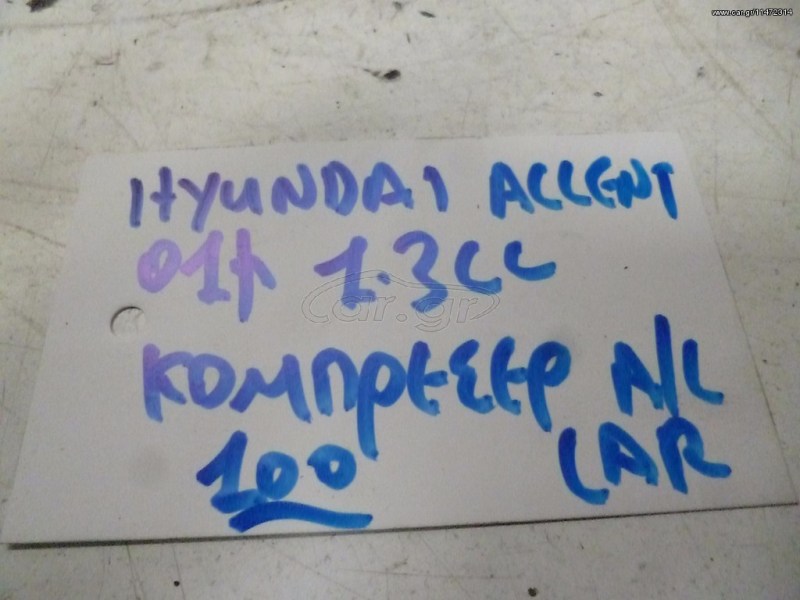 www.car.gr/11472314
HYUNDAI ACCENT
1.3CC
car.gr
ΚΟΜΠΡΕΣΕΡ A/C
100 CAR